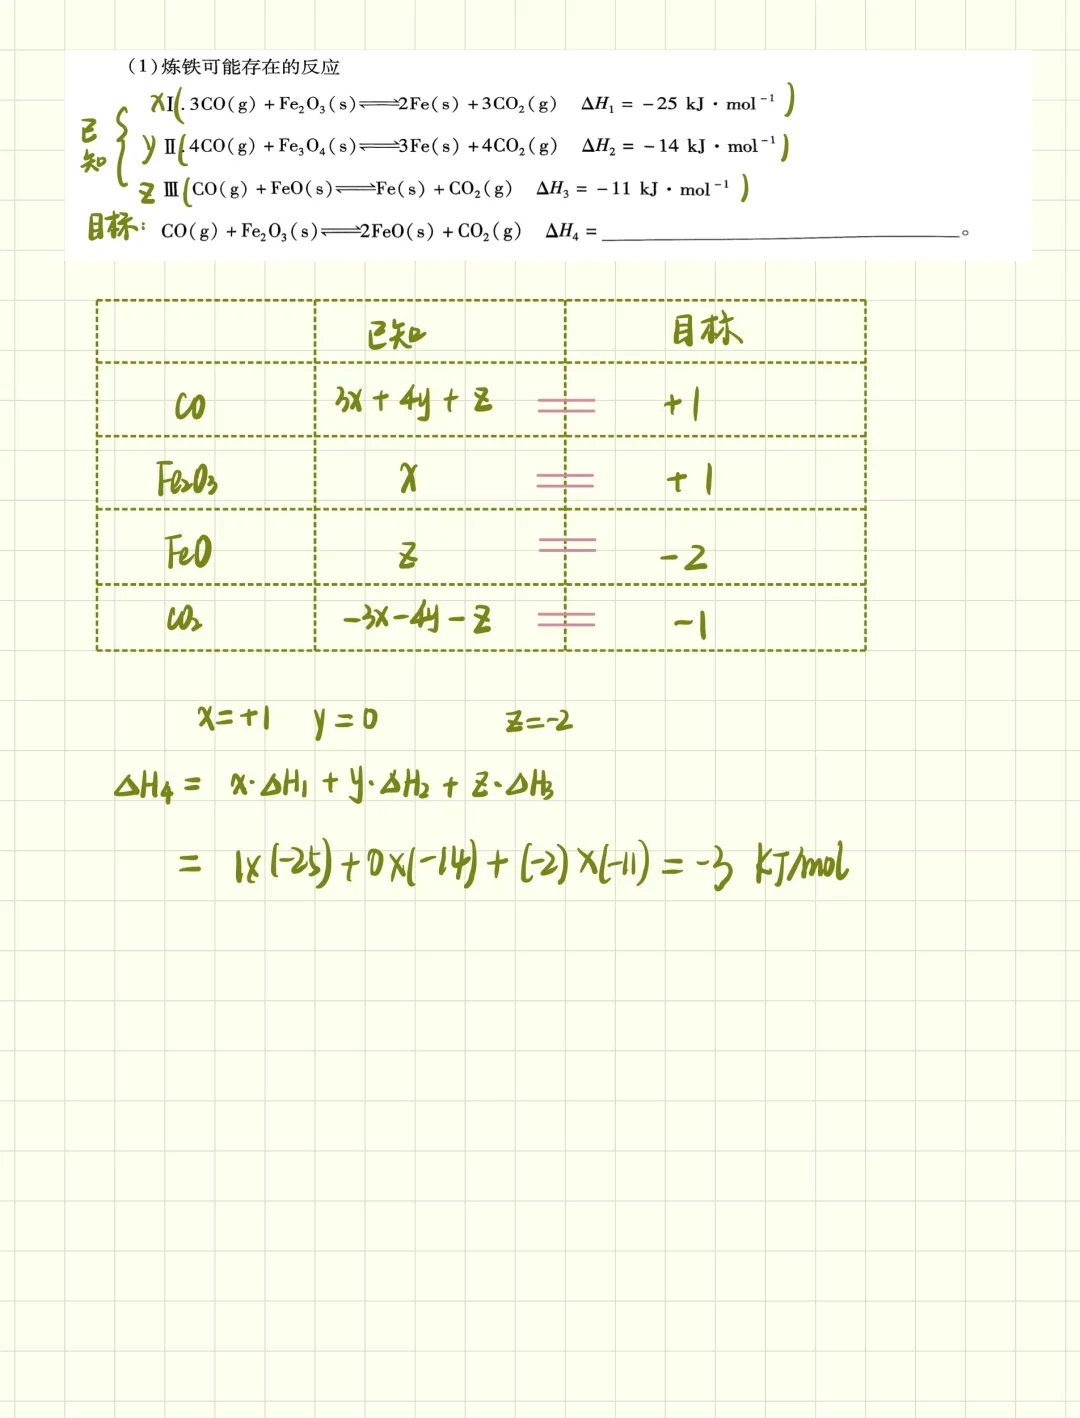 (1)炼铁可能存在的反应
已知
x Ⅰ(.3CO(g)+Fe₂O₃(s)⇌2Fe(s)+3CO₂(g) ΔH₁=-25 kJ·mol⁻¹)
y Ⅱ(.4CO(g)+Fe₃O₄(s)⇌3Fe(s)+4CO₂(g) ΔH₂=-14 kJ·mol⁻¹)
z Ⅲ(CO(g)+FeO(s)⇌Fe(s)+CO₂(g) ΔH₃=-11 kJ·mol⁻¹)
目标: CO(g)+Fe₂O₃(s)⇌2FeO(s)+CO₂(g) ΔH₄=____。
已知 目标
CO 3x+4y+z = +1
Fe₂O₃ x = +1
FeO z = -2
CO₂ -3x-4y-z = -1
x=+1 y=0 z=-2
ΔH₄= x·ΔH₁+y·ΔH₂+z·ΔH₃
= 1×(-25)+0×(-14)+(-2)×(-11)=-3 kJ/mol